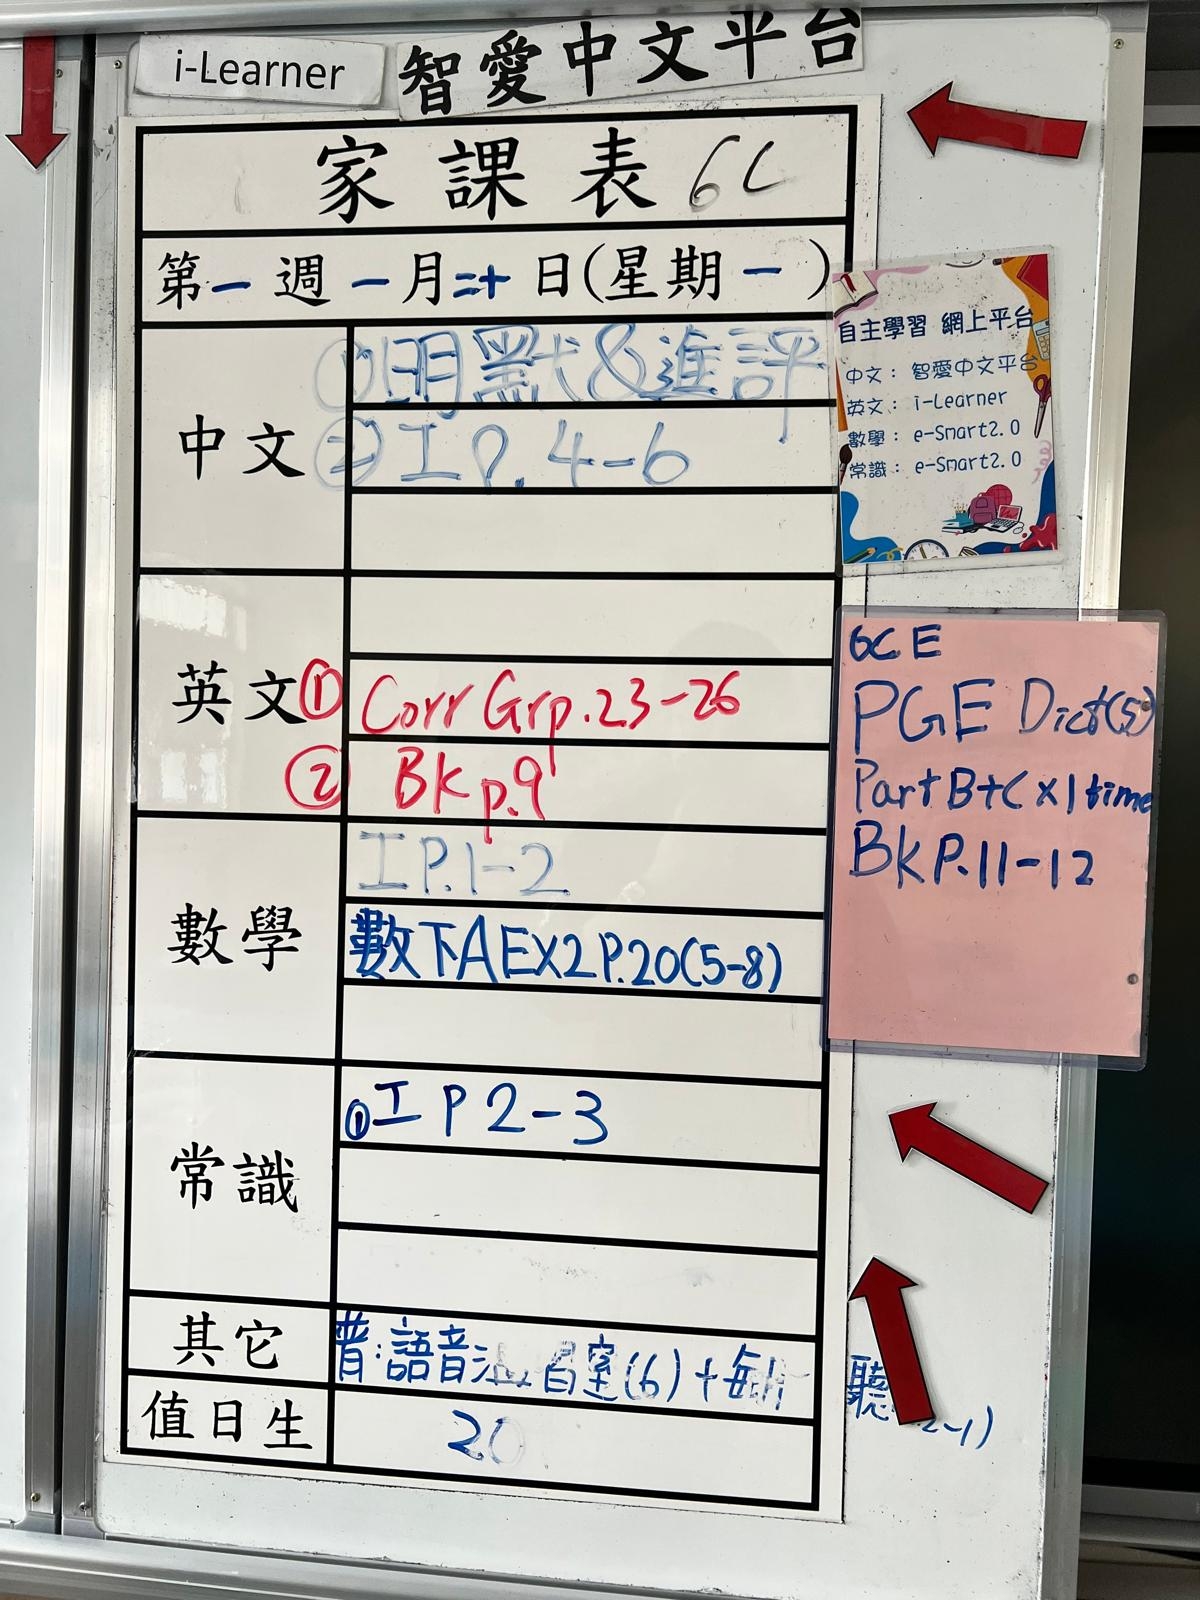 i-Learner 智愛中文平台
家課表 6C
第一週一月二十日(星期一)
中文
①明默&進評
②工P.4-6
英文
① Corr Grp.23-26
② BK p.9
數學
工P.1-2
數下A EX2 P.20(5-8)
常識
①工P 2-3
其它
普:語音 (6)+
聽 2-1)
值日生
20
自主學習 網上平台
中文:智愛中文平台
英文:i-Learner
數學:e-Smart2.0
常識:e-Smart2.0
6C E
PGE Dict(5)
Part B+C x1 time
BK P.11-12